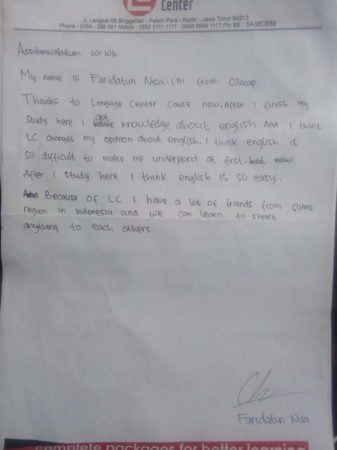 Center
Jl. Langkat 88 Singgahan - Palem Pare - Kediri - Jawa Timur 64213
Assalamualaikum Wr Wb.
My name is Faridatun Nisa. I'm from Cilacap.
Thanks to Language Center cause now, after I finish my
study here I get knowledge about english. And I think
LC changes my opinion about english. I think english is
so difficult to make me understand at first. but now
After I study here I think english is so easy.
And Because of LC I have a lot of friends from some
region in Indonesia and we can learn to share
anything to each others.
Faridatun Nisa
complete packages for better learning